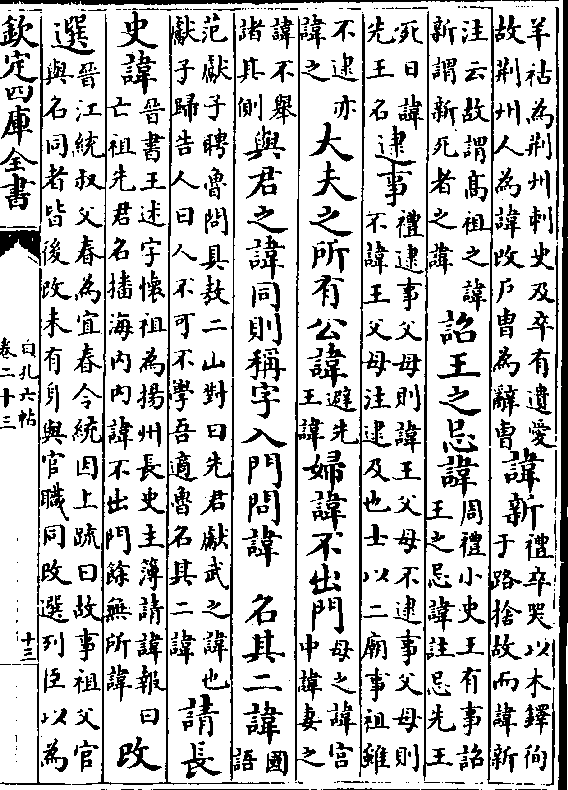 羊祜為荆州刺史及卒有遺愛
故荆州人為諱改戶曹為辭曹
諱新
禮卒哭以木鐸徇
于路捨故而諱新
注云故謂髙祖之諱
新謂新死者之諱
詔王之忌諱
周禮小史王有事詔
王之忌諱註忌先王
死日諱
先王名
逮事
禮逮事父母則諱王父母不逮事父母則
不諱王父母注逮及也士以二廟事祖雖
不逮亦
諱之
大夫之所有公諱
避先
王諱
婦諱不出門
母之諱宫
中諱妻之
諱不舉
諸其側
與君之諱同則稱字入門問諱
名其二諱
國
語
范獻子聘魯問具敖二山對曰先君獻武之諱也
獻子歸告人曰人不可不學吾適魯名其二諱
請長
史諱
晉書王述字懷祖為揚州長史主簿請諱報曰
亡祖先君名播海内内諱不出門餘無所諱
改
選
晉江統叔父春為宜春令統因上疏曰故事祖父官
與名同者皆後改未有身與官職同改選列臣以為
欽定四庫全書
白孔六帖
卷二十三
十三